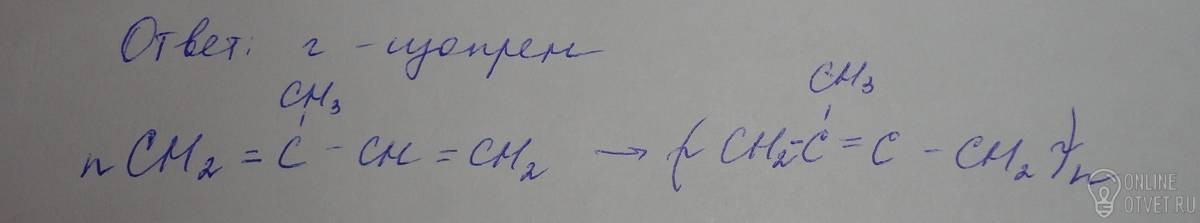 Ответ: г - изопрен
CH₃ CH₃
n CH₂ = C - CH = CH₂ → (- CH₂-C = C - CH₂ -)n
ONLINE
OTVET.RU